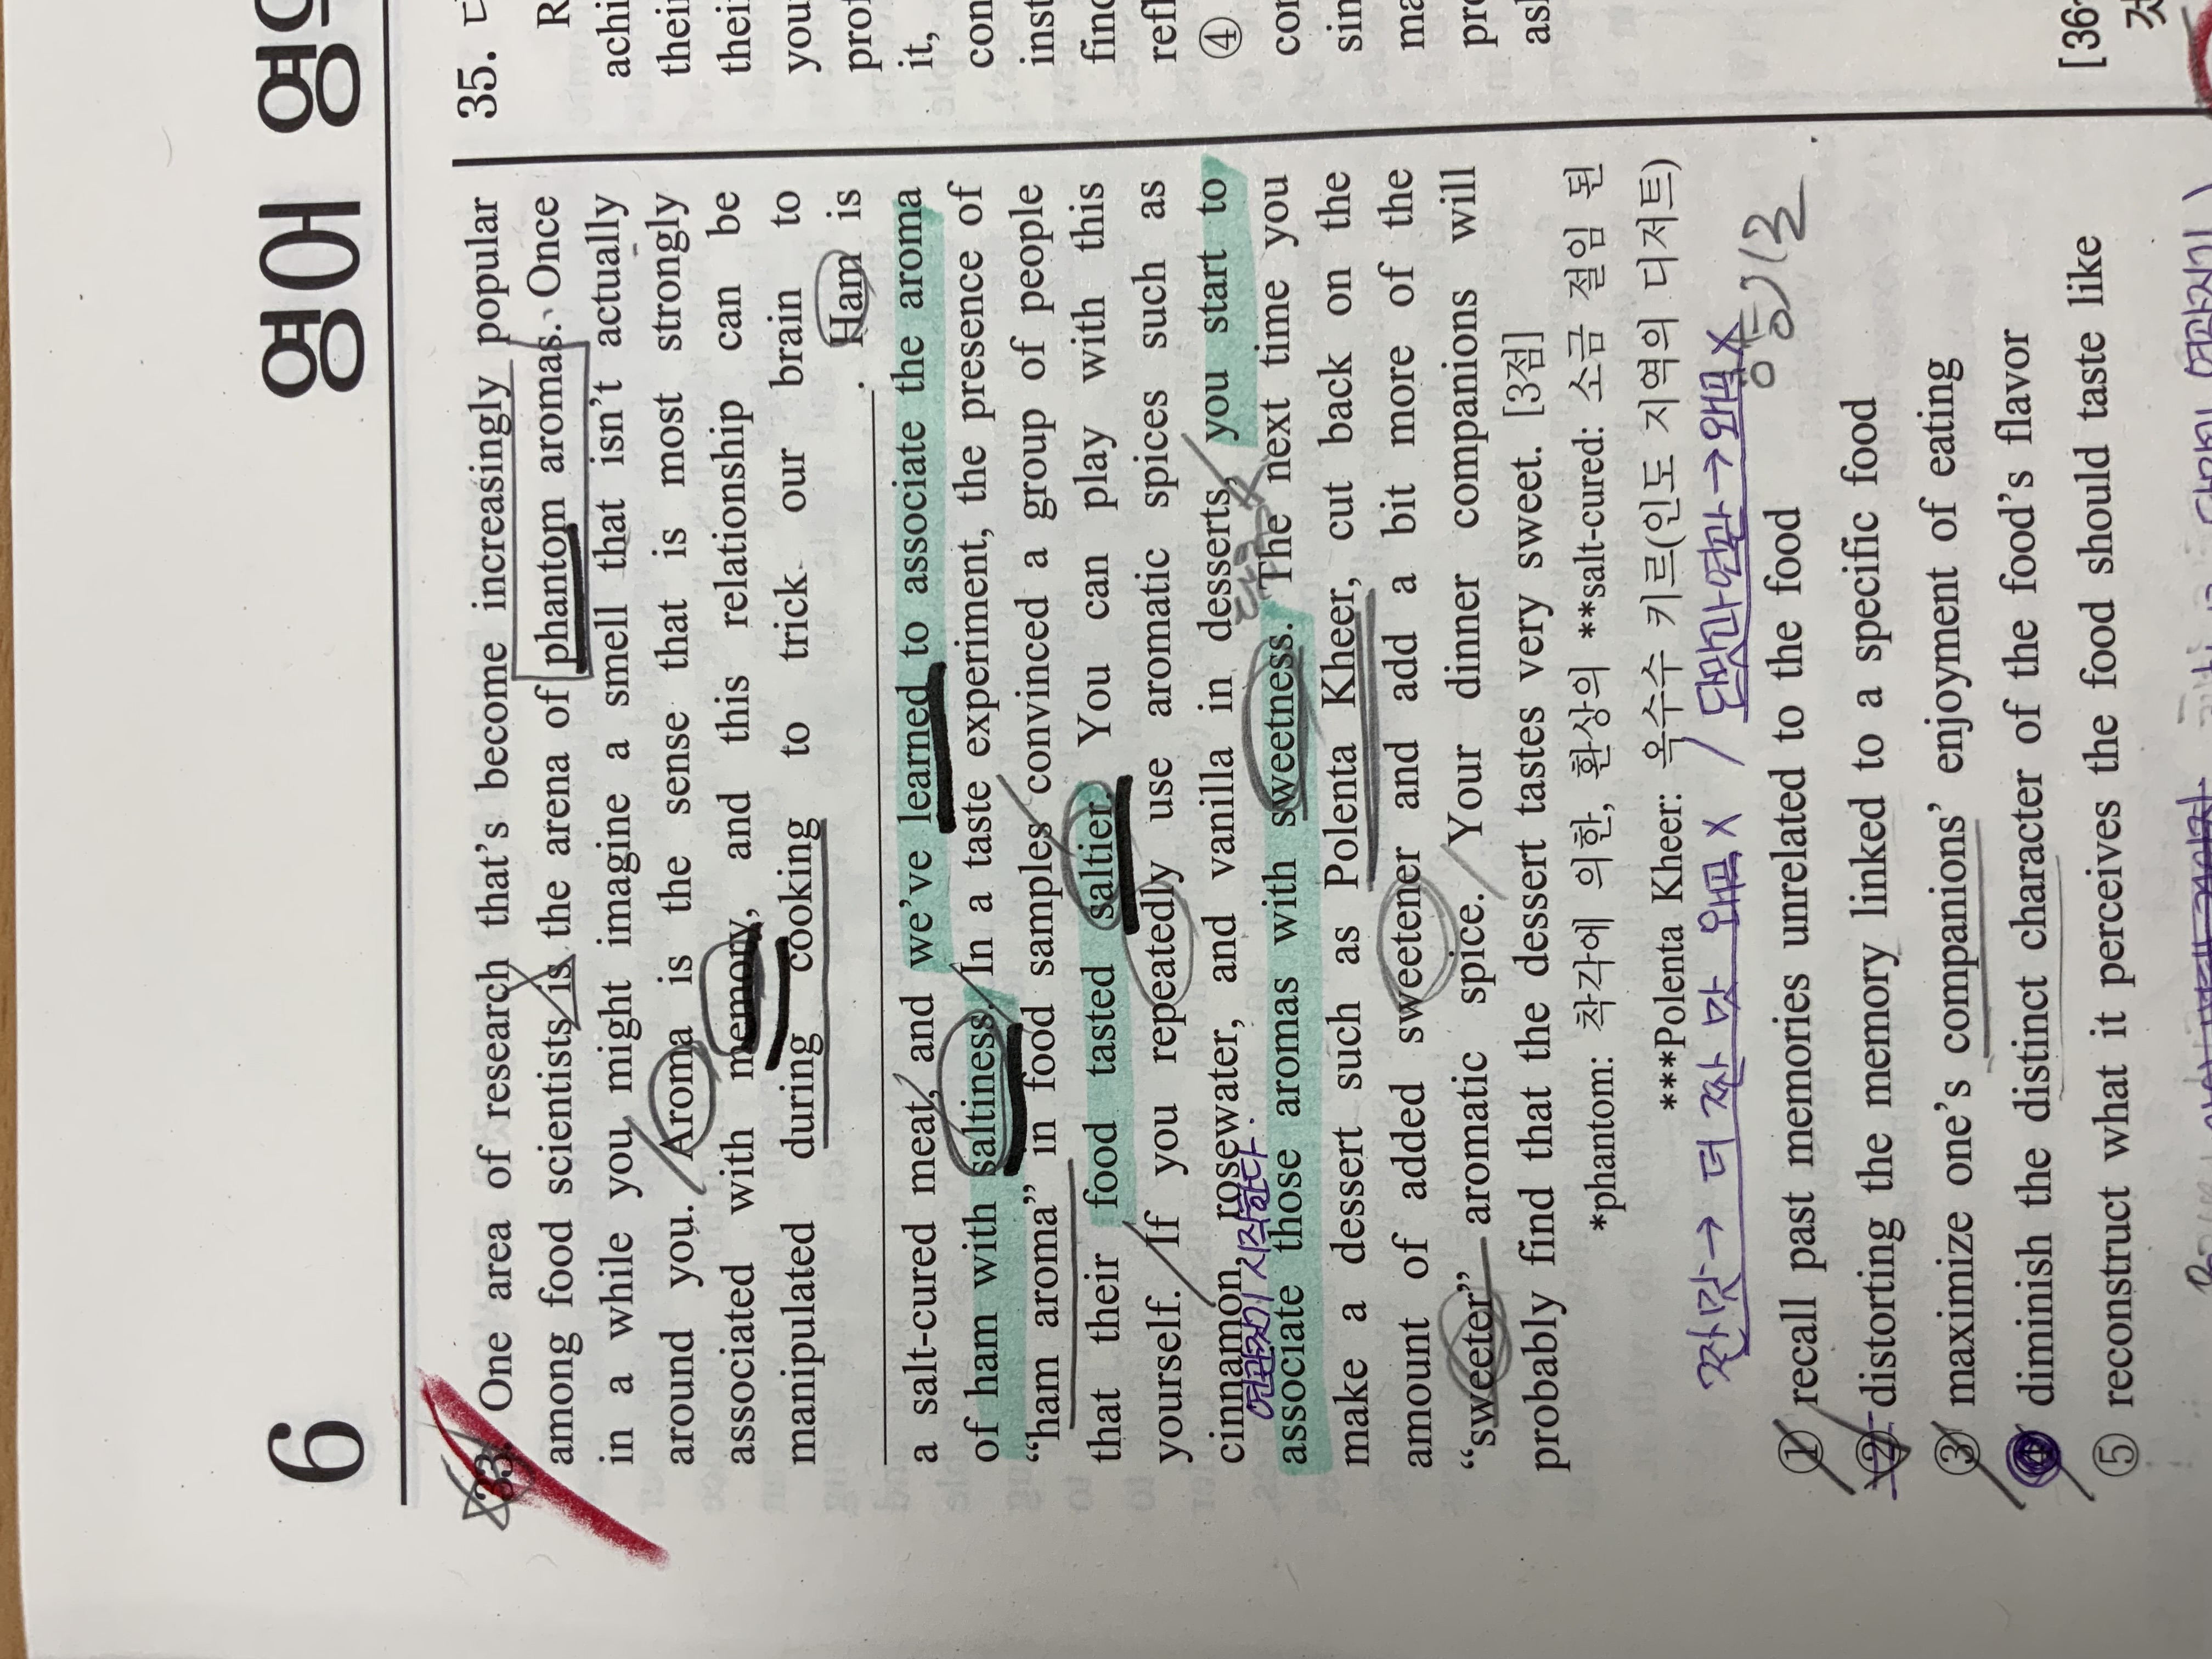 6
영어 영역
33. One area of research that's become increasingly popular
among food scientists is the arena of phantom aromas. Once
in a while you might imagine a smell that isn't actually
around you. Aroma is the sense that is most strongly
associated with memory, and this relationship can be
manipulated during cooking to trick our brain to
. Ham is
a salt-cured meat, and we've learned to associate the aroma
of ham with saltiness. In a taste experiment, the presence of
“ham aroma” in food samples convinced a group of people
that their food tasted saltier. You can play with this
yourself. If you repeatedly use aromatic spices such as
cinnamon, rosewater, and vanilla in desserts, you start to
연관짓기 시작한다.
associate those aromas with sweetness. The next time you
make a dessert such as Polenta Kheer, cut back on the
amount of added sweetener and add a bit more of the
“sweeter” aromatic spice. Your dinner companions will
probably find that the dessert tastes very sweet. [3점]
*phantom: 착각에 의한, 환상의 **salt-cured: 소금 절임 된
***Polenta Kheer: 옥수수 키르(인도 지역의 디저트)
짠맛→ 더 짠 맛 왜곡 X / 단맛과 연관→왜곡X
① recall past memories unrelated to the food
② distorting the memory linked to a specific food
③ maximize one's companions' enjoyment of eating
④ diminish the distinct character of the food's flavor
⑤ reconstruct what it perceives the food should taste like
35.
achi
thei
thei
you
pro
it,
con
inst
find
refl
④
co
sin
ma
pr
as
[36